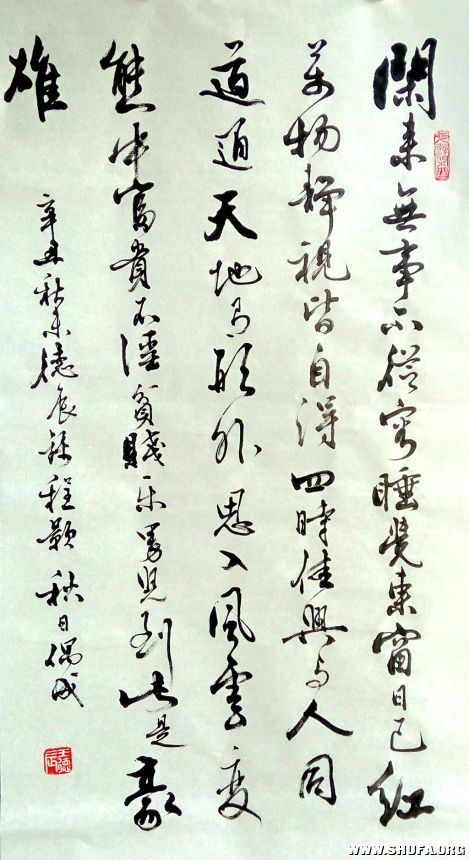 閑來無事不從容睡覺東窗日已紅
萬物靜觀皆自得四時佳興与人同
道通天地有形外思入風雲变
態中富貴不淫貧賤樂男兒到此是豪
雄
辛丑秋末德辰錄程顥秋日偶成
WWW.SHUFA.ORG